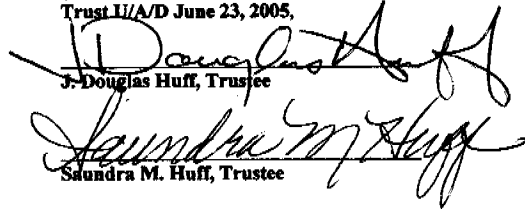 Trust U/A/D June 23, 2005,
J. Douglas Huff
J. Douglas Huff, Trustee
Saundra M Huff
Saundra M. Huff, Trustee